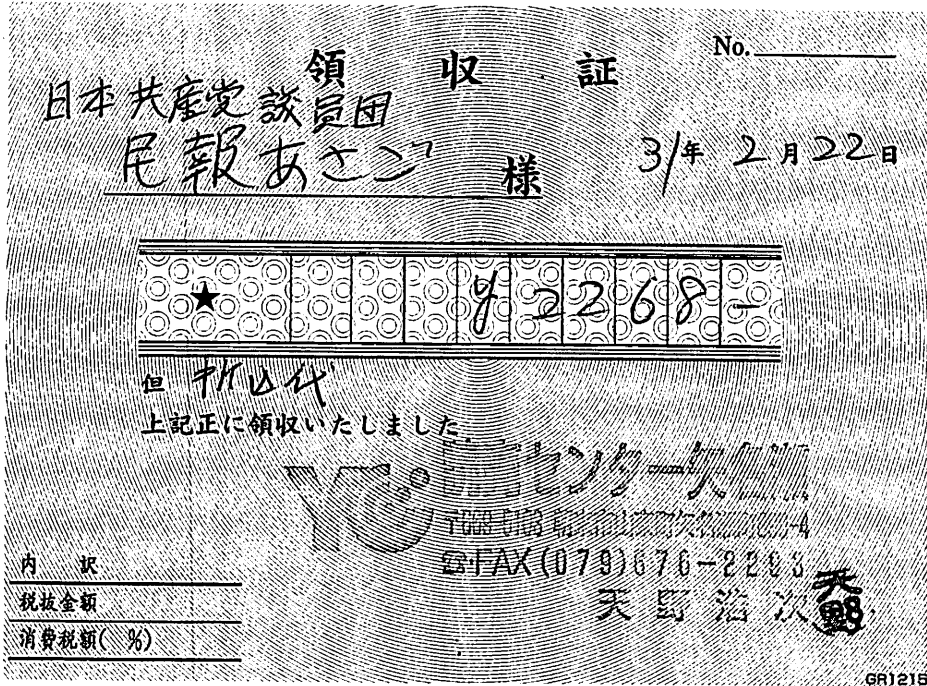 領収証
No.
日本共産党議員団
民報あさご 様
31年2月22日
★ ¥2268-
但 折込代
上記正に領収いたしました
YC センター矢
FAX(079)676-2203
天野 次
天野
内訳
税抜金額
消費税額( %)
GR1215